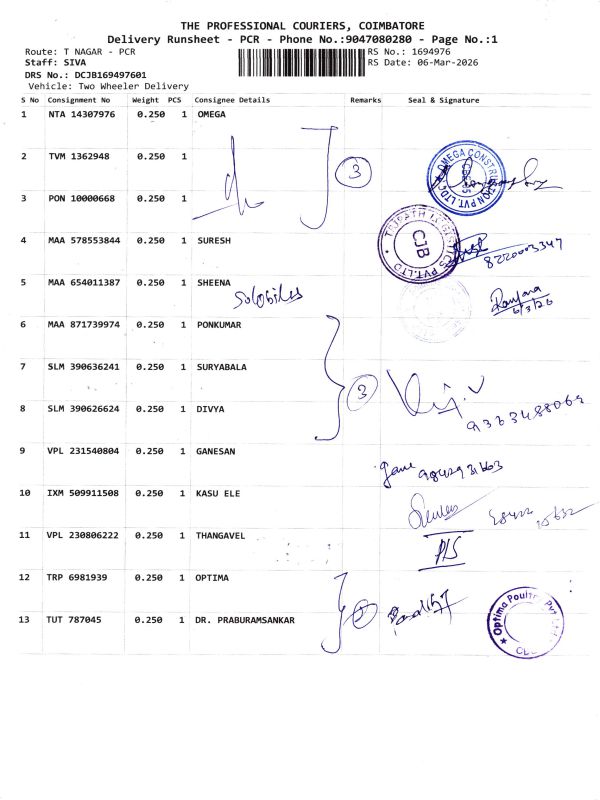 THE PROFESSIONAL COURIERS, COIMBATORE
Delivery Runsheet - PCR - Phone No.:9047080280 - Page No.:1
Route: T NAGAR - PCR
RS No.: 1694976
Staff: SIVA
RS Date: 06-Mar-2026
DRS No.: DCJB169497601
Vehicle: Two Wheeler Delivery
S No Consignment No Weight PCS Consignee Details Remarks Seal & Signature
1 NTA 14307976 0.250 1 OMEGA
2 TVM 1362948 0.250 1
3
OMEGA CONSTRUCTION PVT.LTD
3 PON 10000668 0.250 1
4 MAA 578553844 0.250 1 SURESH
CJB
PVT.LTD
8220003347
5 MAA 654011387 0.250 1 SHEENA
Ranjana
6/3/26
6 MAA 871739974 0.250 1 PONKUMAR
7 SLM 390636241 0.250 1 SURYABALA
3
8 SLM 390626624 0.250 1 DIVYA
9 VPL 231540804 0.250 1 GANESAN
10 IXM 509911508 0.250 1 KASU ELE
11 VPL 230806222 0.250 1 THANGAVEL
12 TRP 6981939 0.250 1 OPTIMA
13 TUT 787045 0.250 1 DR. PRABURAMSANKAR
Optima Poultry Pvt Ltd